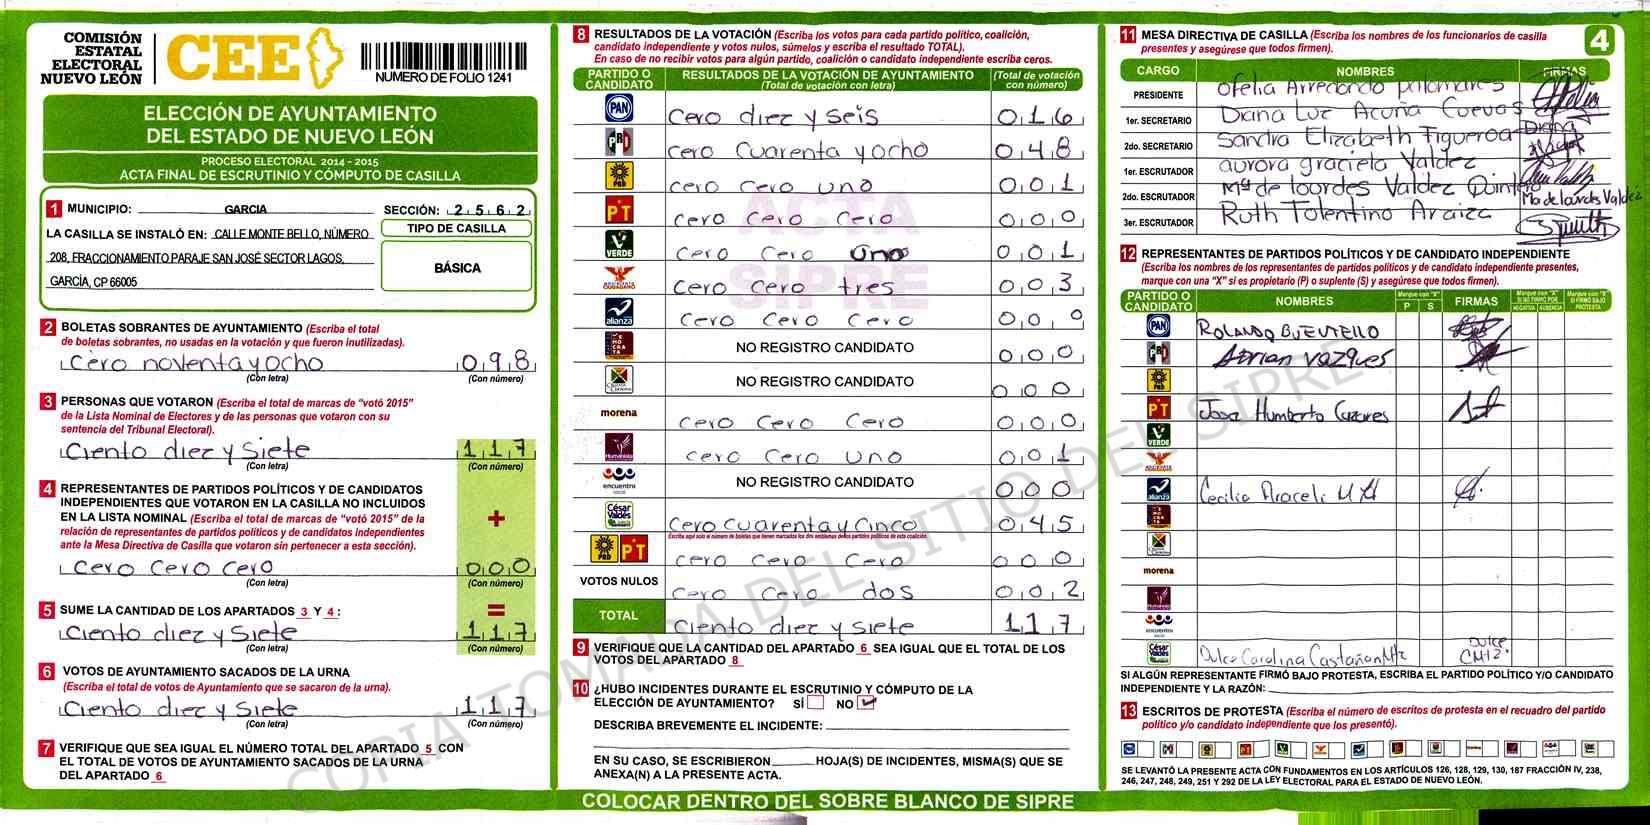 COMISIÓN
ESTATAL
ELECTORAL
NUEVO LEÓN
CEE
NUMERO DE FOLIO 1241
ELECCIÓN DE AYUNTAMIENTO
DEL ESTADO DE NUEVO LEÓN
PROCESO ELECTORAL 2014 - 2015
ACTA FINAL DE ESCRUTINIO Y CÓMPUTO DE CASILLA
1 MUNICIPIO: GARCIA SECCIÓN: 2562
LA CASILLA SE INSTALÓ EN: CALLE MONTE BELLO, NÚMERO
208, FRACCIONAMIENTO PARAJE SAN JOSÉ SECTOR LAGOS,
GARCÍA, CP 66005
TIPO DE CASILLA
BÁSICA
2 BOLETAS SOBRANTES DE AYUNTAMIENTO (Escriba el total
de boletas sobrantes, no usadas en la votación y que fueron inutilizadas).
Cero noventa y ocho 098
(Con letra) (Con número)
3 PERSONAS QUE VOTARON (Escriba el total de marcas de "votó 2015"
de la Lista Nominal de Electores y de las personas que votaron con su
sentencia del Tribunal Electoral).
Ciento diez y siete 117
(Con letra) (Con número)
4 REPRESENTANTES DE PARTIDOS POLÍTICOS Y DE CANDIDATOS
INDEPENDIENTES QUE VOTARON EN LA CASILLA NO INCLUIDOS
EN LA LISTA NOMINAL (Escriba el total de marcas de "votó 2015" de la
relación de representantes de partidos políticos y de candidatos independientes
ante la Mesa Directiva de Casilla que votaron sin pertenecer a esta sección).
+
Cero Cero Cero 000
(Con letra) (Con número)
5 SUME LA CANTIDAD DE LOS APARTADOS 3 Y 4 : =
Ciento diez y siete 117
(Con letra) (Con número)
6 VOTOS DE AYUNTAMIENTO SACADOS DE LA URNA
(Escriba el total de votos de Ayuntamiento que se sacaron de la urna).
Ciento diez y siete 117
(Con letra) (Con número)
7 VERIFIQUE QUE SEA IGUAL EL NÚMERO TOTAL DEL APARTADO 5 CON
EL TOTAL DE VOTOS DE AYUNTAMIENTO SACADOS DE LA URNA
DEL APARTADO 6
8 RESULTADOS DE LA VOTACIÓN (Escriba los votos para cada partido político, coalición,
candidato independiente y votos nulos, súmelos y escriba el resultado TOTAL).
En caso de no recibir votos para algún partido, coalición o candidato independiente escriba ceros.
PARTIDO O CANDIDATO RESULTADOS DE LA VOTACIÓN DE AYUNTAMIENTO (Total de votación con letra) (Total de votación con número)
PAN Cero diez y seis 016
PRI Cero cuarenta y ocho 048
PRD Cero Cero uno 001
PT Cero Cero Cero 000
VERDE Cero Cero uno 001
Cero Cero tres 003
alianza Cero Cero Cero 000
NO REGISTRO CANDIDATO 000
NO REGISTRO CANDIDATO 000
morena Cero Cero Cero 000
Humanista Cero Cero uno 001
encuentro social NO REGISTRO CANDIDATO 000
César Valdés Cero Cuarenta y Cinco 045
Escriba aquí solo el número de boletas que tienen marcados los dos emblemas de los partidos políticos de esta coalición.
PRD PT Cero Cero Cero 000
VOTOS NULOS Cero Cero dos 002
TOTAL Ciento diez y siete 117
9 VERIFIQUE QUE LA CANTIDAD DEL APARTADO 6 SEA IGUAL QUE EL TOTAL DE LOS
VOTOS DEL APARTADO 8
10 ¿HUBO INCIDENTES DURANTE EL ESCRUTINIO Y CÓMPUTO DE LA
ELECCIÓN DE AYUNTAMIENTO? SÍ NO
DESCRIBA BREVEMENTE EL INCIDENTE:
EN SU CASO, SE ESCRIBIERON HOJA(S) DE INCIDENTES, MISMA(S) QUE SE
ANEXA(N) A LA PRESENTE ACTA.
COLOCAR DENTRO DEL SOBRE BLANCO DE SIPRE
11 MESA DIRECTIVA DE CASILLA (Escriba los nombres de los funcionarios de casilla
presentes y asegúrese que todos firmen).
4
CARGO NOMBRES FIRMAS
PRESIDENTE Ofelia Arredondo palomares
1er. SECRETARIO Diana Luz Acuña Cuevas Diana
2do. SECRETARIO Sandra Elizabeth Figueroa
1er. ESCRUTADOR aurora graciela Valdez
2do. ESCRUTADOR Mª de lourdes Valdez Quintero Ma de lourdes Valdez
3er. ESCRUTADOR Ruth Tolentino Araiza
12 REPRESENTANTES DE PARTIDOS POLÍTICOS Y DE CANDIDATO INDEPENDIENTE
(Escriba los nombres de los representantes de partidos políticos y de candidato independiente presentes,
marque con una "X" si es propietario (P) o suplente (S) y asegúrese que todos firmen).
PARTIDO O CANDIDATO NOMBRES Marque con "X" P S FIRMAS Marque con "X" SI NO FIRMÓ POR NEGATIVA AUSENCIA Marque con "X" SI FIRMÓ BAJO PROTESTA
PAN ROLANDO BUENTELLO
PRI Adrian vazques
PRD
PT Jose Humberto Cazares
VERDE
alianza Cecilia Araceli
morena
Humanista
encuentro social
César Valdés Dulce Carolina Castañon Mtz Dulce CMtz.
SI ALGÚN REPRESENTANTE FIRMÓ BAJO PROTESTA, ESCRIBA EL PARTIDO POLÍTICO Y/O CANDIDATO
INDEPENDIENTE Y LA RAZÓN:
13 ESCRITOS DE PROTESTA (Escriba el número de escritos de protesta en el recuadro del partido
político y/o candidato independiente que los presentó).
SE LEVANTÓ LA PRESENTE ACTA CON FUNDAMENTOS EN LOS ARTÍCULOS 126, 128, 129, 130, 187 FRACCIÓN IV, 238,
246, 247, 248, 249, 251 Y 292 DE LA LEY ELECTORAL PARA EL ESTADO DE NUEVO LEÓN.
ACTA
SIPRE
COPIA TOMADA DEL SITIO DEL SIPRE